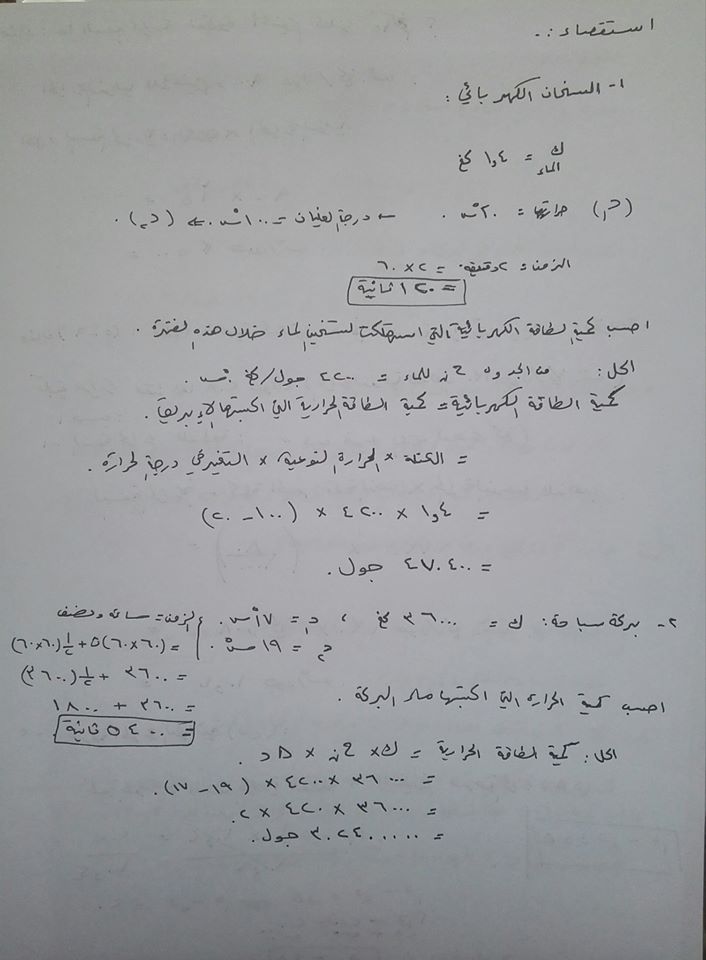 استقصاء :.
١- السخان الكهربائي :
ك الماء = ١,٤ كغ
(د١) حرارتها = ٢٠°س . ← درجة الغليان = ١٠٠°س ← (د٢) .
الزمن = ٢ دقيقة = ٢ × ٦٠
= ١٢٠ ثانية
احسب كمية الطاقة الكهربائية التي استهلكت لتسخين الماء خلال هذه الفترة .
الحل : من الجدول حن للماء = ٤٢٠٠ جول/كغ.°س .
كمية الطاقة الكهربائية = كمية الطاقة الحرارية التي اكتسبتها الإبريق .
= الكتلة × الحرارة النوعية × التغير في درجة الحرارة .
= ١,٤ × ٤٢٠٠ × (١٠٠ - ٢٠)
= ٤٧٠٤٠٠ جول .
٢- بركة سباحة : ك = ٣٦٠٠٠٠ كغ ، د١ = ١٧°س .
د٢ = ١٩°س .
الزمن = ساعة ونصف
= (٦٠×٦٠) + ½(٦٠×٦٠)
= ٣٦٠٠ + ½(٣٦٠٠)
= ٣٦٠٠ + ١٨٠٠
= ٥٤٠٠ ثانية
احسب كمية الحرارة التي اكتسبتها البركة .
الحل : كمية الطاقة الحرارية = ك × حن × Δ د .
= ٣٦٠٠٠٠ × ٤٢٠٠ × (١٩ - ١٧) .
= ٣٦٠٠٠٠ × ٤٢٠٠ × ٢ .
= ٣٠٢٤٠٠٠٠٠٠ جول .